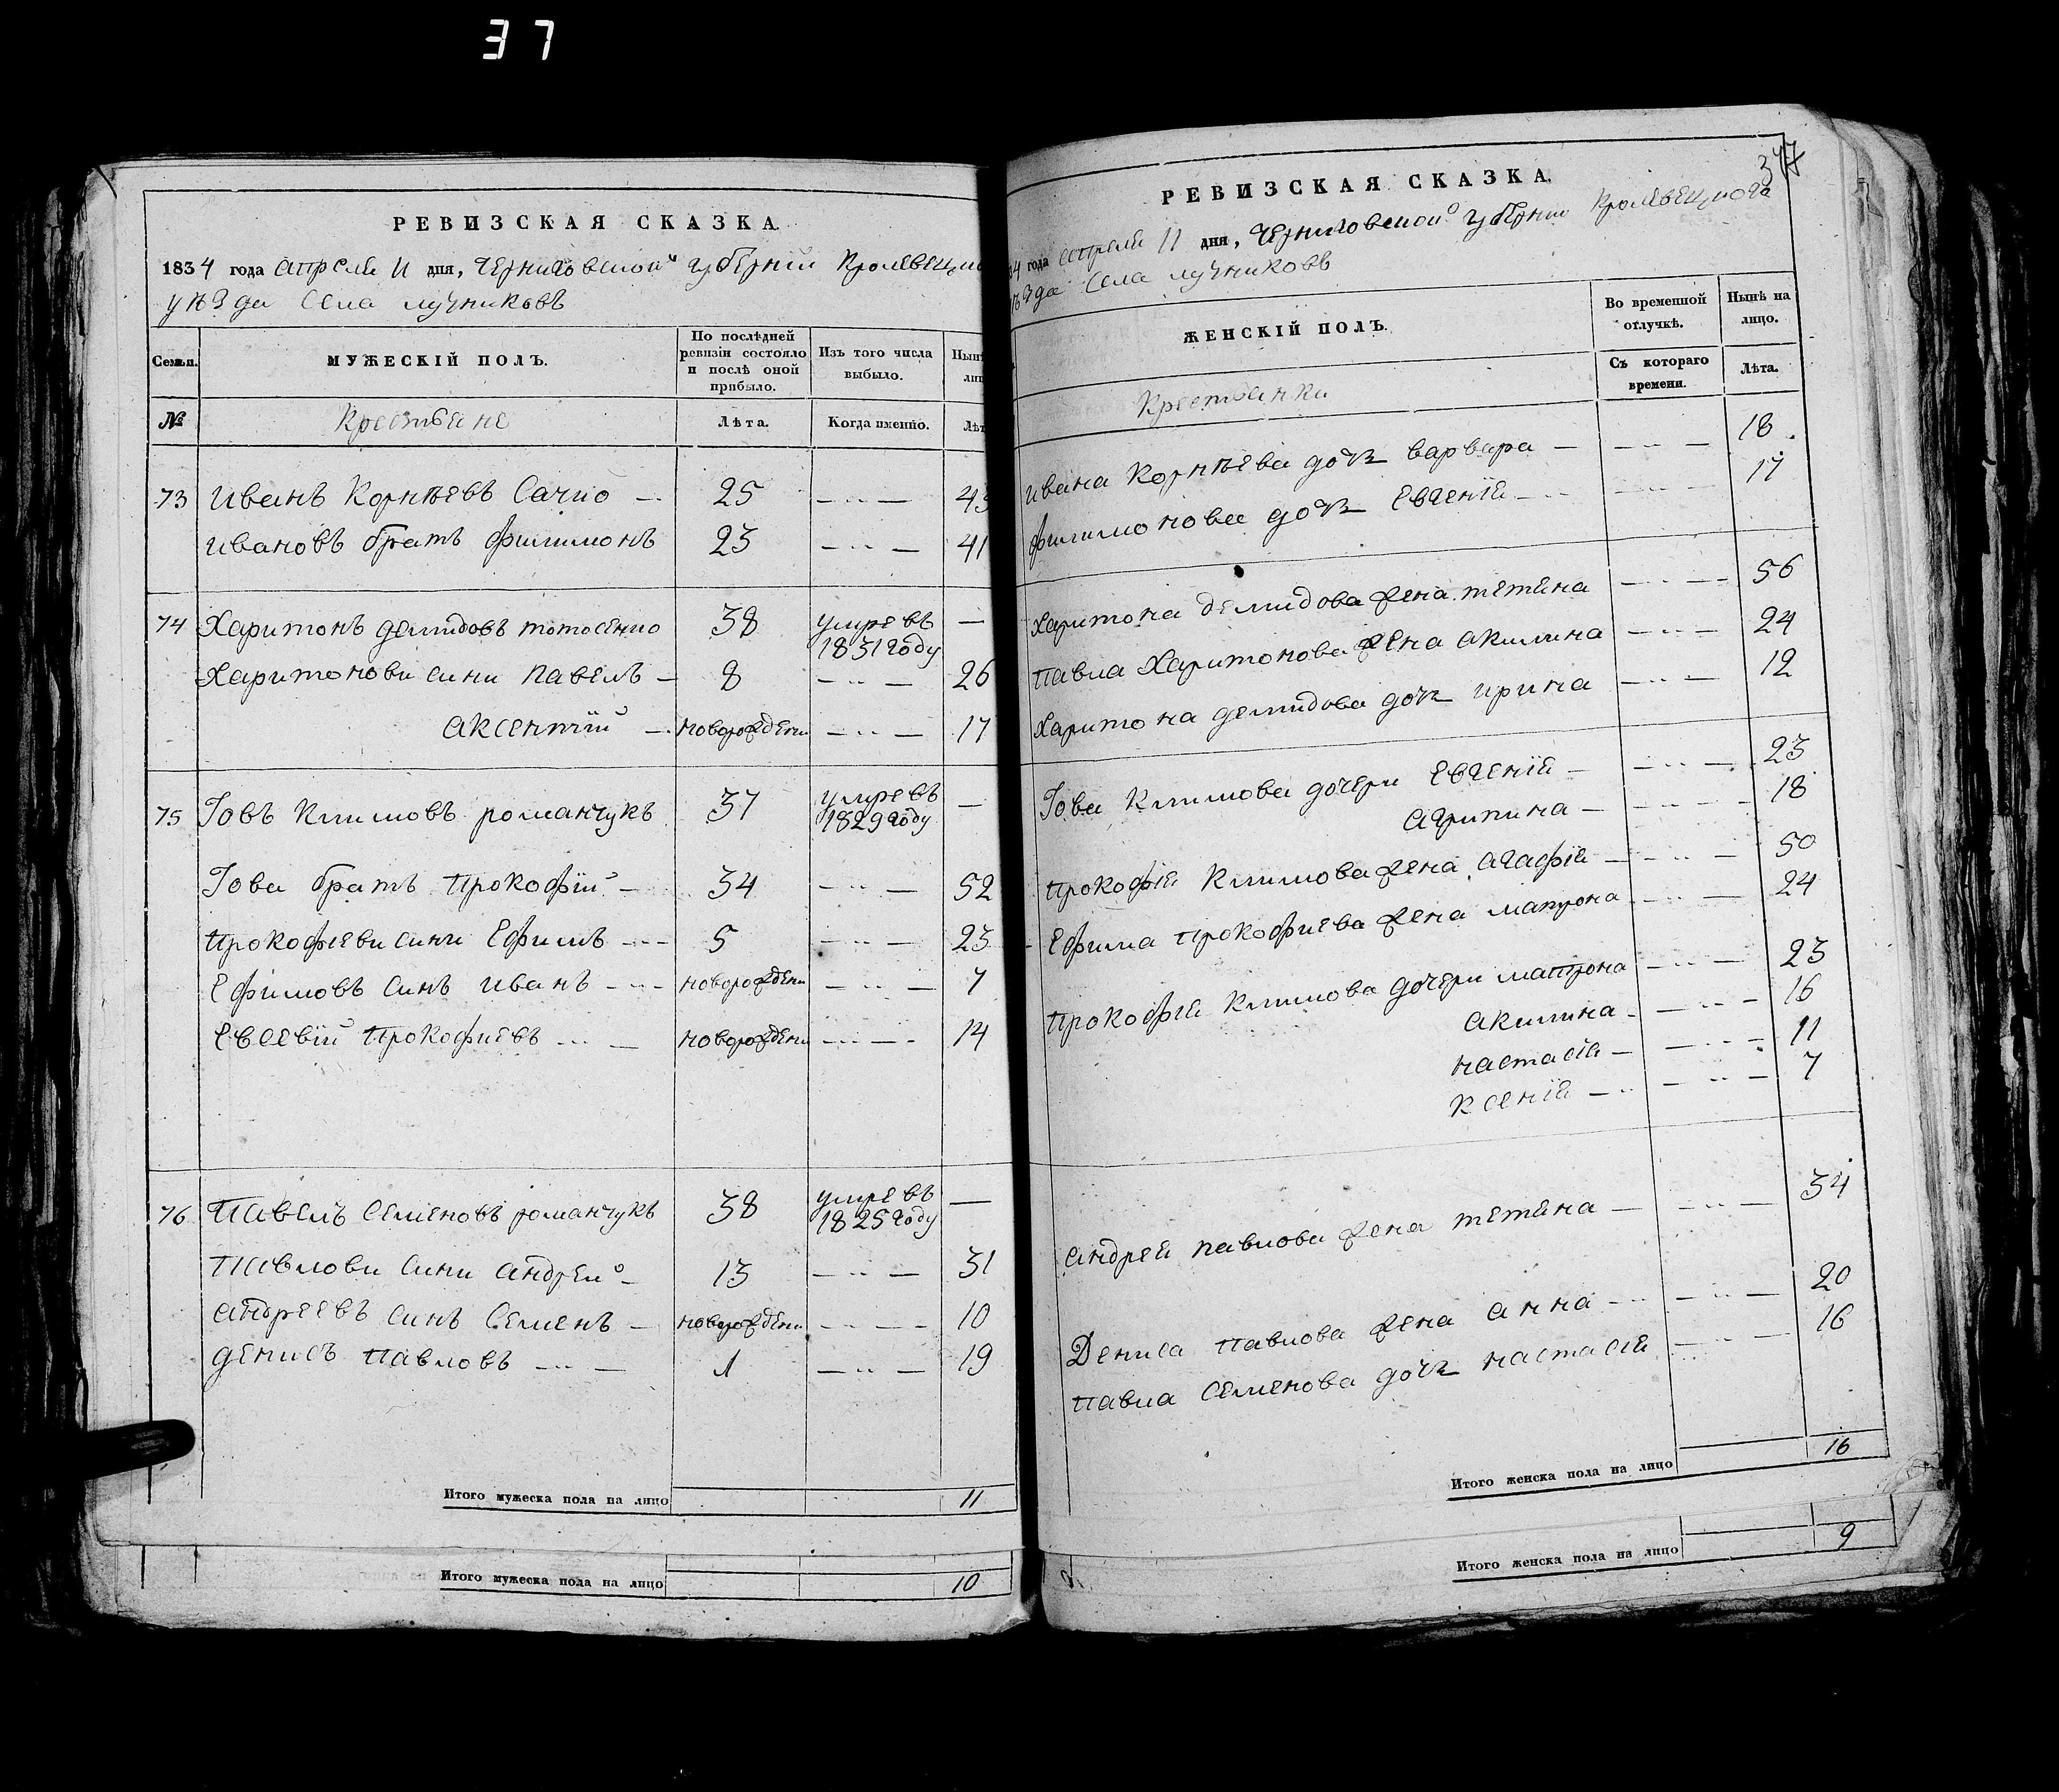 37
РЕВИЗСКАЯ СКАЗКА
1834 года апреля 11 дня, Черниговской губернии Кролевецко
уѣзда села лучниковъ
Семьи.
МУЖЕСКІЙ ПОЛЪ.
По послѣдней ревизіи состояло и послѣ оной прибыло.
Изъ того числа выбыло.
Нынѣ
лиц
№
Крестьяне
Лѣта.
Когда именно.
Лѣт
73 Иванъ Корнѣевъ 25 — 43
Ивановъ братъ филимонъ 23 — 41
74 Харитонъ демидовъ 38 умре въ 1831 году —
Харитонови сини Павелъ — 8 — 26
Аксентій — новорожден — 17
75 Іовъ Климовъ романчукъ 37 умре въ 1829 году —
Іова братъ Прокофій — 34 — 52
Прокофіеви сини Ефимъ — 5 — 23
Ефимовъ синъ иванъ — новорожден — 7
Евсевій Прокофиевъ — новорожден — 14
76 Павелъ Семеновъ романчукъ 38 умре въ 1825 году —
Павлови сини андрей — 13 — 31
андреевъ синъ Семенъ — новорожден — 10
денисъ павловъ — 1 — 19
Итого мужеска пола на лицо 11
Итого мужеска пола на лицо 10
347
РЕВИЗСКАЯ СКАЗКА.
34 года апреля 11 дня, Черниговской губернии Кролевецкого
ѣзда села лучниковъ
ЖЕНСКІЙ ПОЛЪ.
Во временной отлучкѣ.
Нынѣ на лицо.
Съ котораго времени.
Лѣта.
Крестьянки
ивана Корнѣева дочь варвара — 18
филимонова дочь Евгенія — 17
Харитона демидова жена тетяна — 56
павла Харитонова жена акилина — 24
Харитона демидова дочь ирина — 12
Іова Климова дочери Евгенія — 23
агрипина — 18
прокофія Климова жена агафія — 50
Ефима прокофиева жена матрона — 24
прокофія Климова дочери матрона — 23
акилина — 16
настасія — 11
ксенія — 7
андрея павлова жена тетяна — 34
Дениса павлова жена анна — 20
павла Семенова дочь настасія — 16
Итого женска пола на лицо 16
Итого женска пола на лицо 9